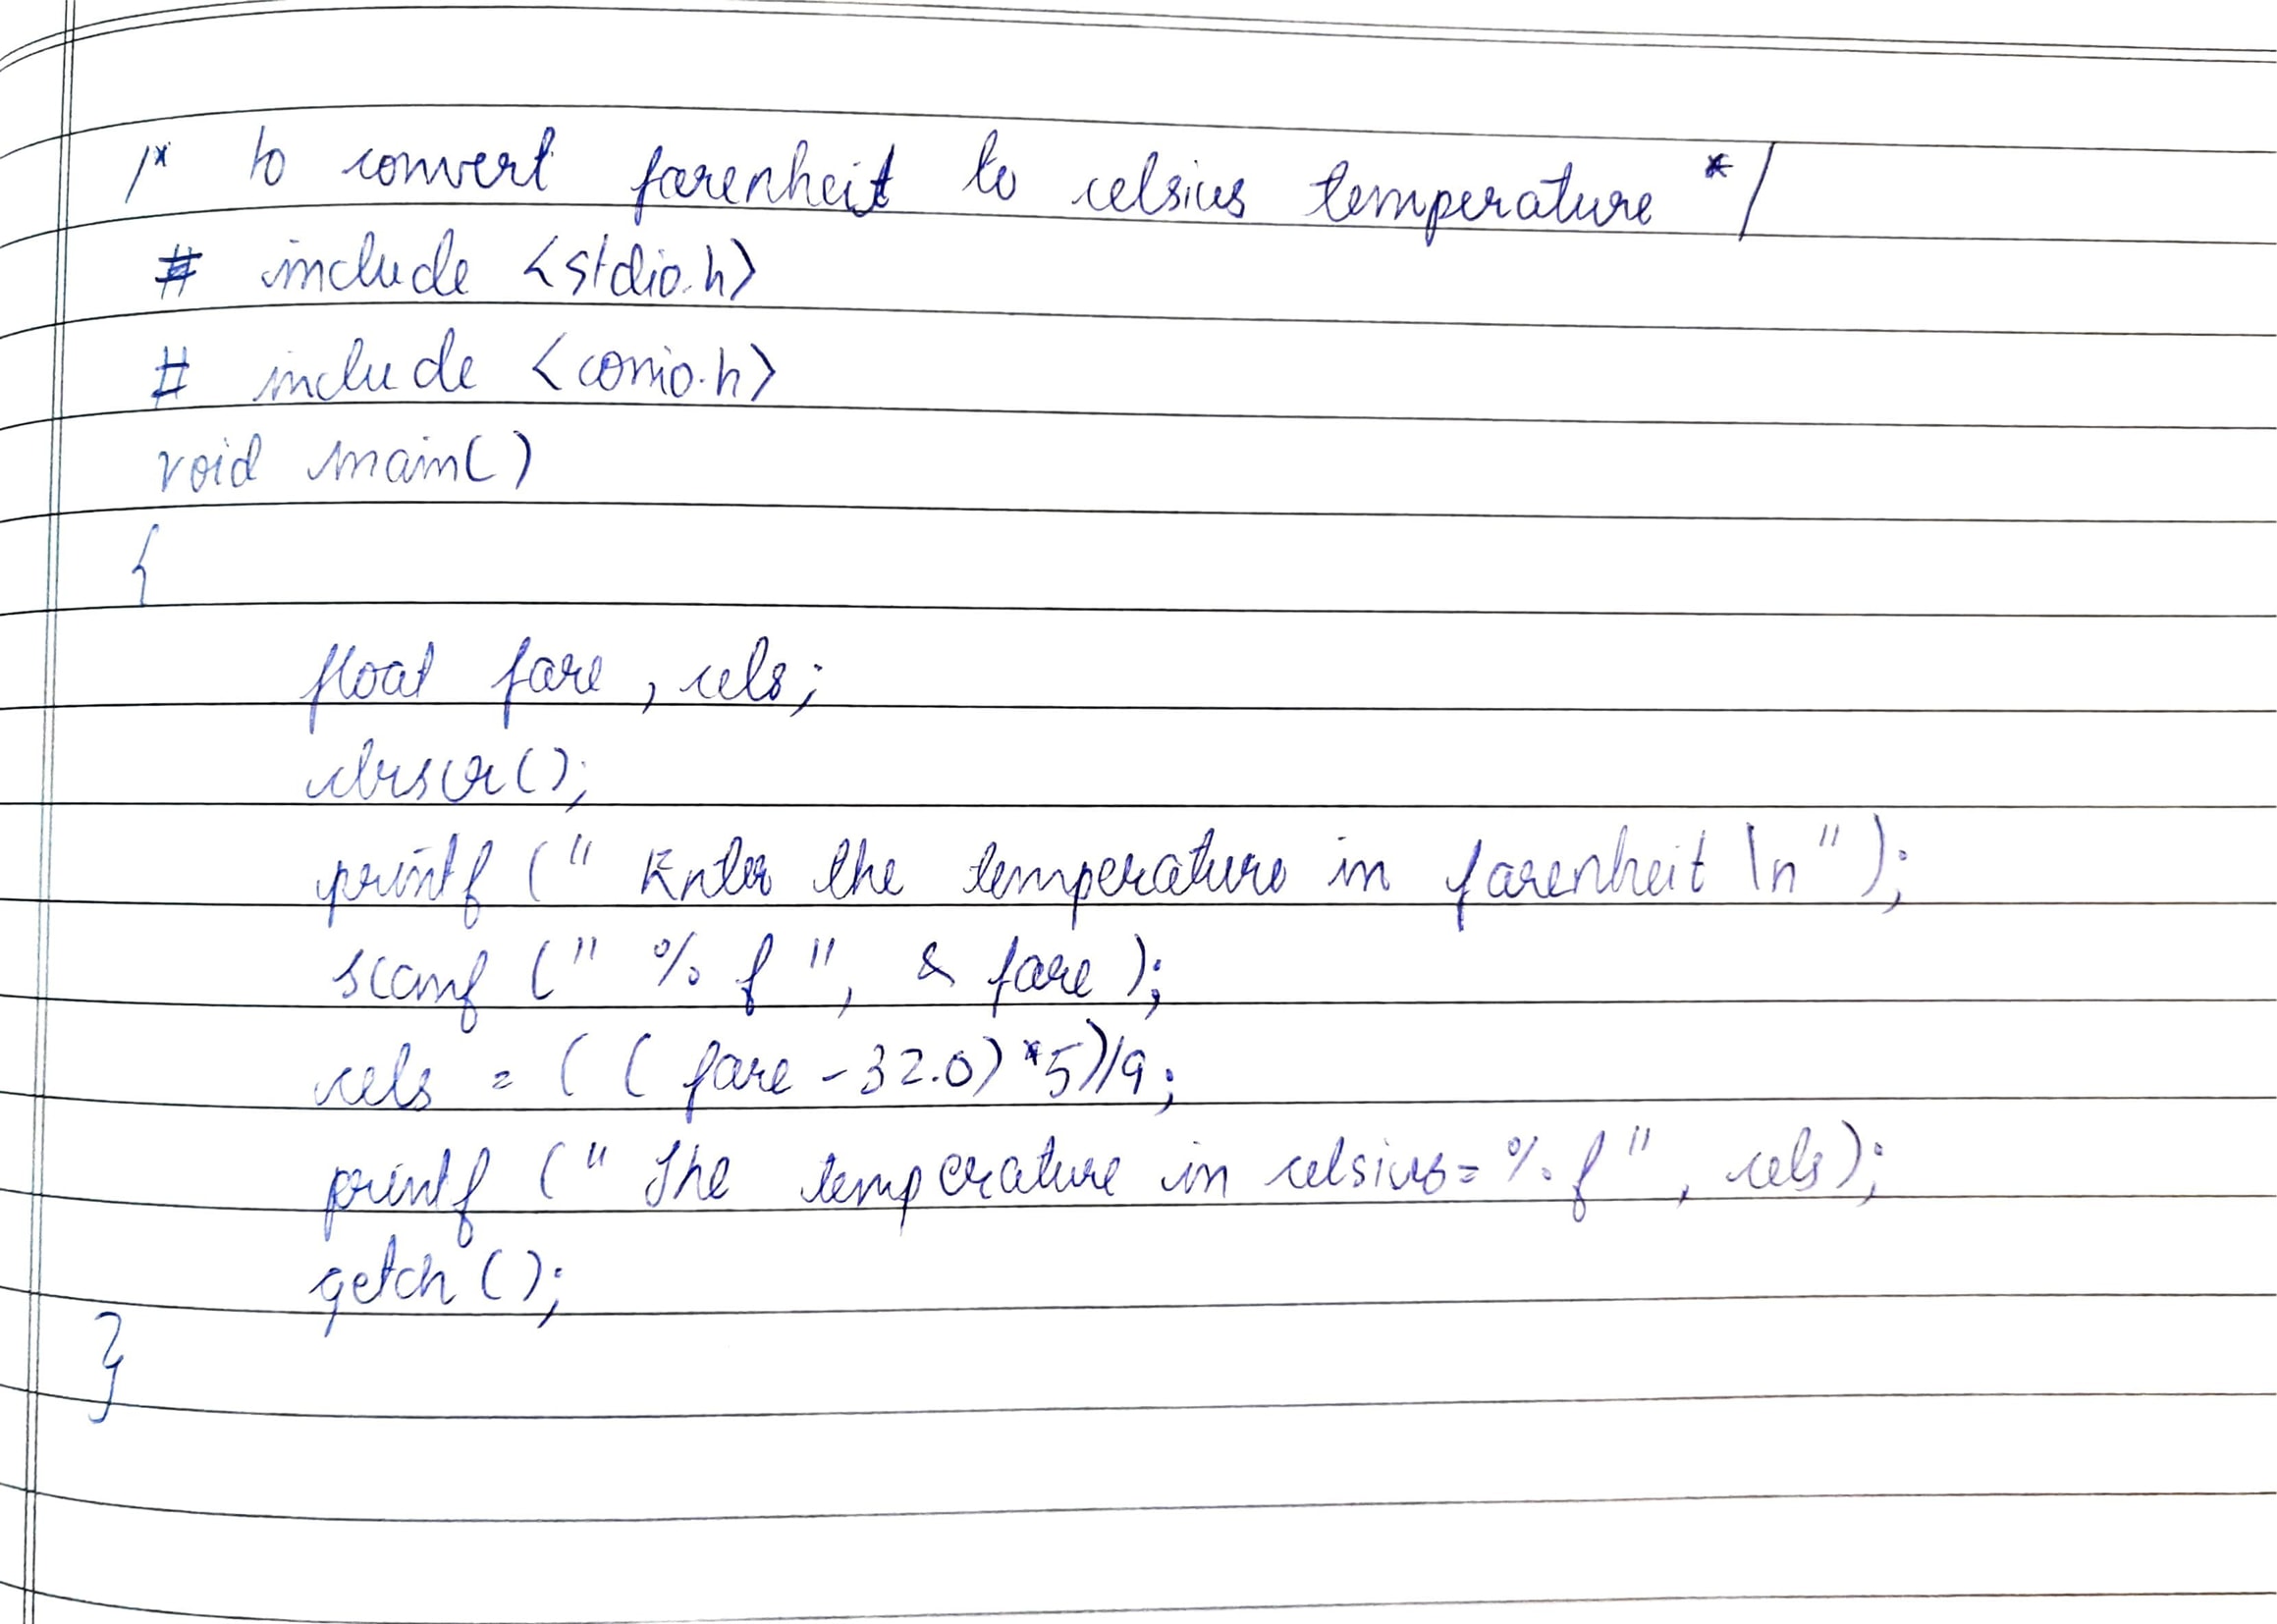 /* to convert farenheit to celsius temperature */
# include <stdio.h>
# include <conio.h>
void main()
{
float fare , cels;
clrscr();
printf (" Enter the temperature in farenheit \n ");
scanf (" % f ", & fare );
cels = ( ( fare - 32.0) *5)/9;
printf (" The temperature in celsius= % f ", cels);
getch ();
}